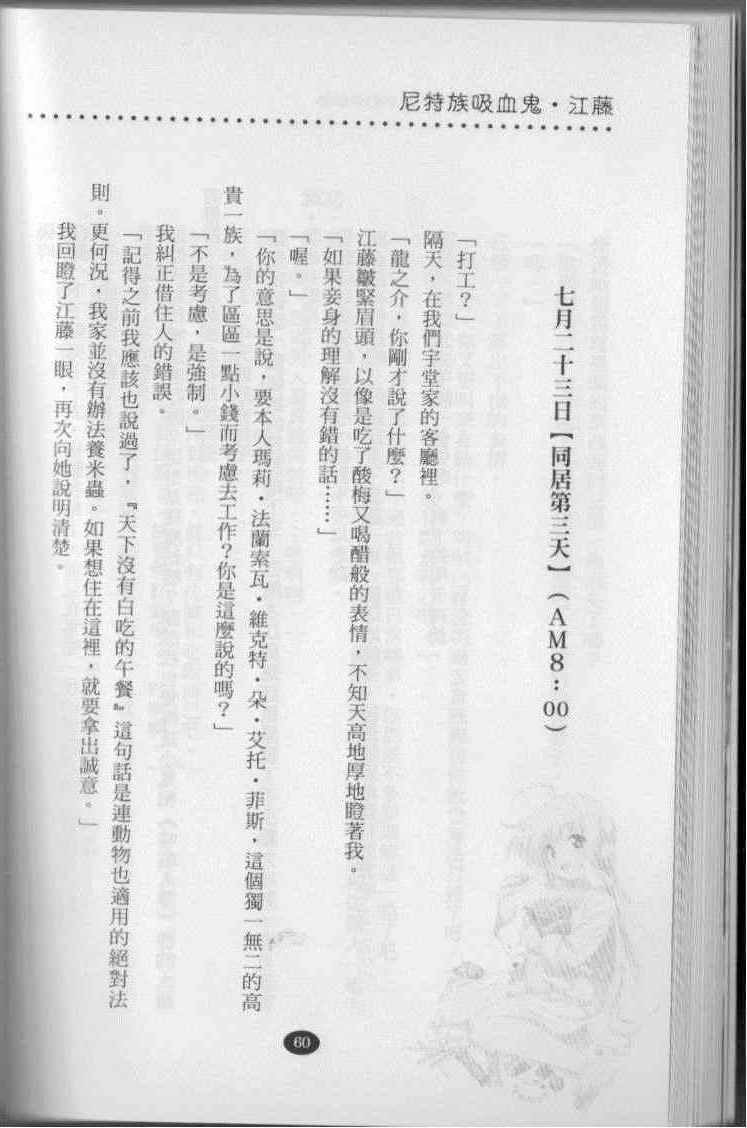 尼特族吸血鬼・江藤
七月二十三日【同居第三天】（AM8：00）
「打工？」
隔天，在我們宇堂家的客廳裡。
「龍之介，你剛才說了什麼？」
江藤皺緊眉頭，以像是吃了酸梅又喝醋般的表情，不知天高地厚地瞪著我。
「如果妾身的理解沒有錯的話……」
「喔。」
「你的意思是說，要本人瑪莉・法蘭索瓦・維克特・朵・艾托・菲斯，這個獨一無二的高
貴一族，為了區區一點小錢而考慮去工作？你是這麼說的嗎？」
「不是考慮，是強制。」
我糾正借住人的錯誤。
「記得之前我應該也說過了，『天下沒有白吃的午餐』這句話是連動物也適用的絕對法
則。更何況，我家並沒有辦法養米蟲。如果想住在這裡，就要拿出誠意。」
我回瞪了江藤一眼，再次向她說明清楚。
60